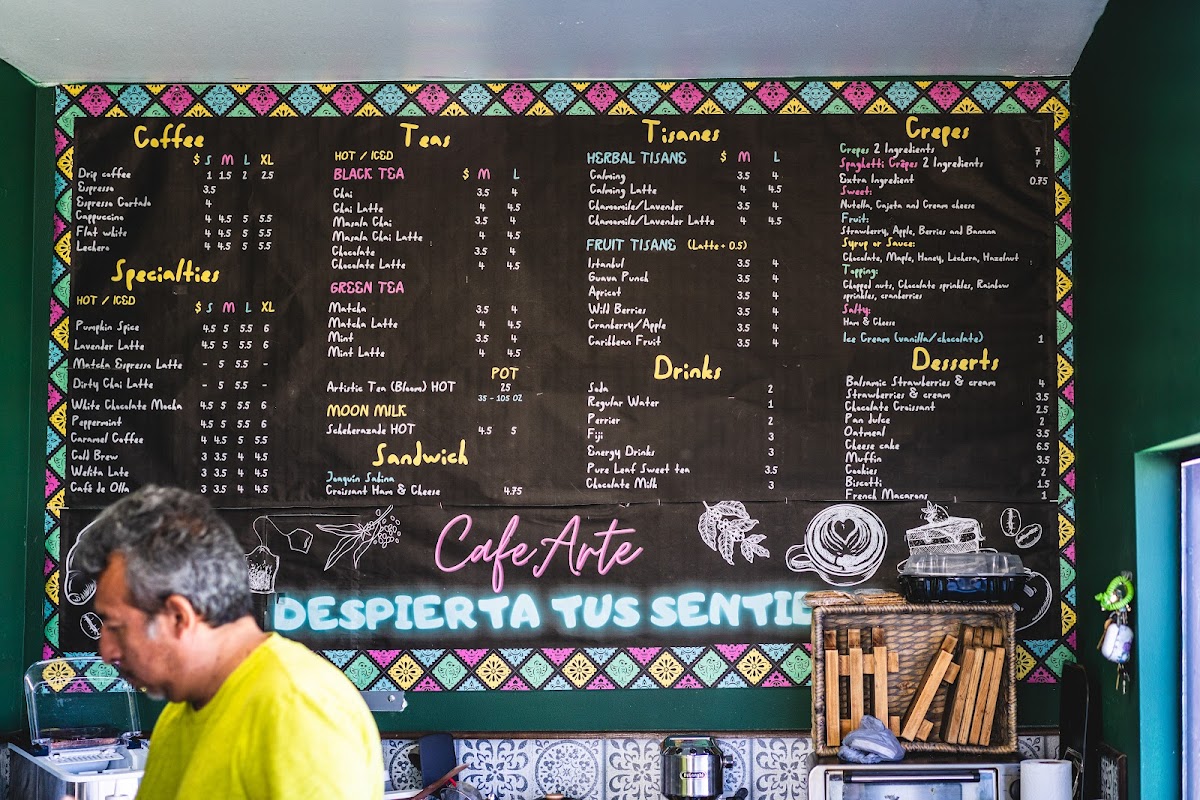 Coffee
$ S M L XL
Drip coffee 1 1.5 2 2.5
Espresso 3.5
Espresso Cortado 4
Cappuccino 4 4.5 5 5.5
Flat white 4 4.5 5 5.5
Lechero 4 4.5 5 5.5
Specialties
HOT / ICED $ S M L XL
Pumpkin Spice 4.5 5 5.5 6
Lavender Latte 4.5 5 5.5 6
Matcha Espresso Latte - 5 5.5 -
Dirty Chai Latte - 5 5.5 -
White Chocolate Mocha 4.5 5 5.5 6
Peppermint 4.5 5 5.5 6
Caramel Coffee 4 4.5 5 5.5
Cold Brew 3 3.5 4 4.5
Welita Late 3 3.5 4 4.5
Café de Olla 3 3.5 4 4.5
Teas
HOT / ICED
BLACK TEA $ M L
Chai 3.5 4
Chai Latte 4 4.5
Masala Chai 3.5 4
Masala Chai Latte 4 4.5
Chocolate 3.5 4
Chocolate Latte 4 4.5
GREEN TEA
Matcha 3.5 4
Matcha Latte 4 4.5
Mint 3.5 4
Mint Latte 4 4.5
POT
Artistic Tea (Bloom) HOT 25
35 - 105 OZ
MOON MILK
Scheherazade HOT 4.5 5
Sandwich
Joaquín Sabina
Croissant Ham & Cheese 4.75
Tisanes
HERBAL TISANE $ M L
Calming 3.5 4
Calming Latte 4 4.5
Chamomile/Lavender 3.5 4
Chamomile/Lavender Latte 4 4.5
FRUIT TISANE (Latte + 0.5)
Istanbul 3.5 4
Guava Punch 3.5 4
Apricot 3.5 4
Wild Berries 3.5 4
Cranberry/Apple 3.5 4
Caribbean Fruit 3.5 4
Drinks
Soda 2
Regular Water 1
Perrier 2
Fiji 3
Energy Drinks 3
Pure Leaf Sweet tea 3.5
Chocolate Milk 3
Crepes
Crepes 2 Ingredients 7
Spaghetti Crêpes 2 Ingredients 7
Extra Ingredient 0.75
Sweet:
Nutella, Cajeta and Cream cheese
Fruit:
Strawberry, Apple, Berries and Banana
Syrup or Sauce:
Chocolate, Maple, Honey, Lechera, Hazelnut
Topping:
Chopped nuts, Chocolate sprinkles, Rainbow
sprinkles, cranberries
Salty:
Ham & Cheese
Ice Cream (vanilla/chocolate) 1
Desserts
Balsamic Strawberries & cream 4
Strawberries & cream 3.5
Chocolate Croissant 2.5
Pan dulce 2
Oatmeal 3.5
Cheese cake 6.5
Muffin 3.5
Cookies 2
Biscotti 1.5
French Macarons 1
Cafe Arte
DESPIERTA TUS SENTID
DeLonghi